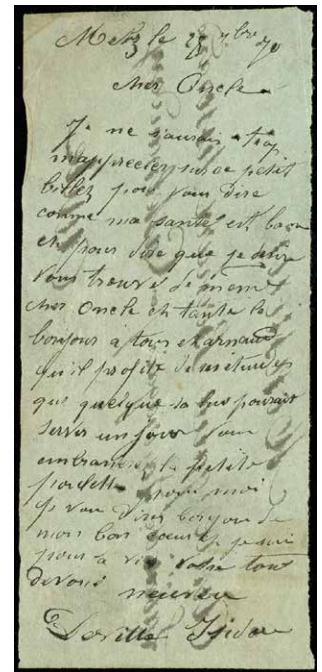 Metz le 28 7bre 70
cher Oncle
Je ne saurais trop
sur ce petit
billet pour vous dire
comme ma santé est bonne
et pour dire que je désire
vous trouver de même
cher Oncle et tante le
bonjour a tous et arnaud
qu'il profite de
que quelque
servir un jour vous
embrasserez la petite
pour moi
Je vous dirai bonjour de
mon bon coeur je suis
pour la vie votre tout
dévoué neuveu
Deville Isidore